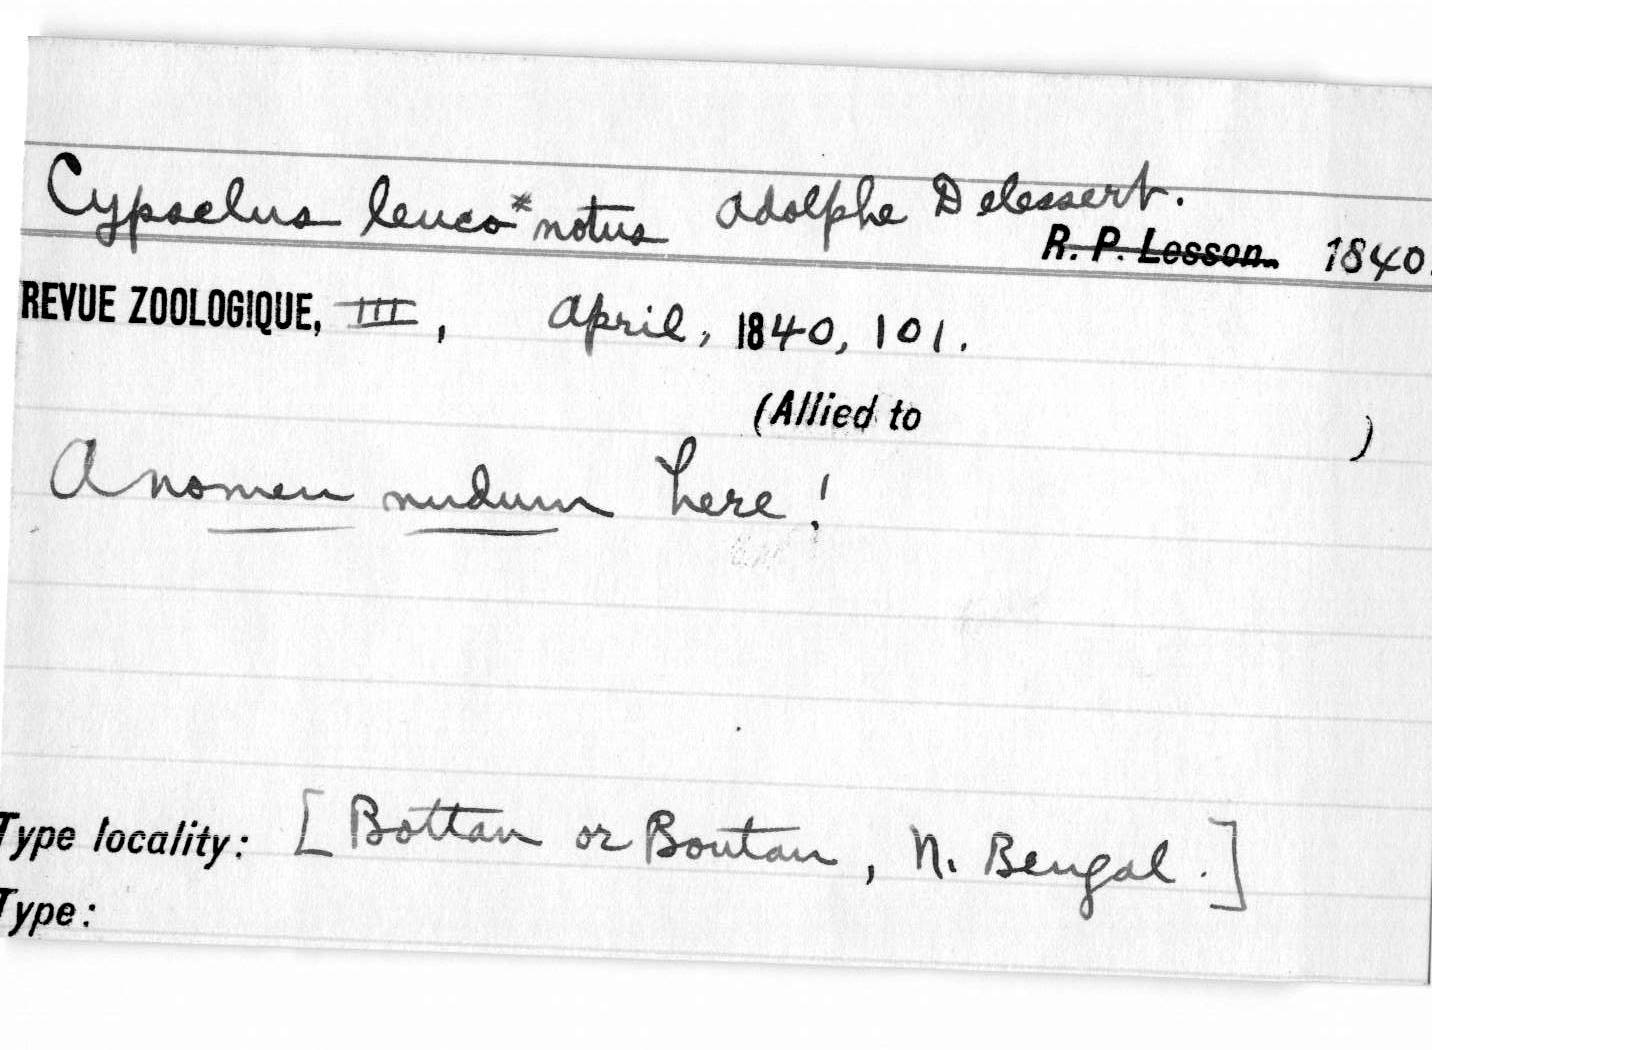 Cypselus leuco*notus Adolphe Delessert.
R. P. Lesson. 1840.
REVUE ZOOLOGIQUE, III, April, 1840, 101.
(Allied to )
A nomen nudum here!
Type locality: [Bottan or Boutan, N. Bengal.]
Type: